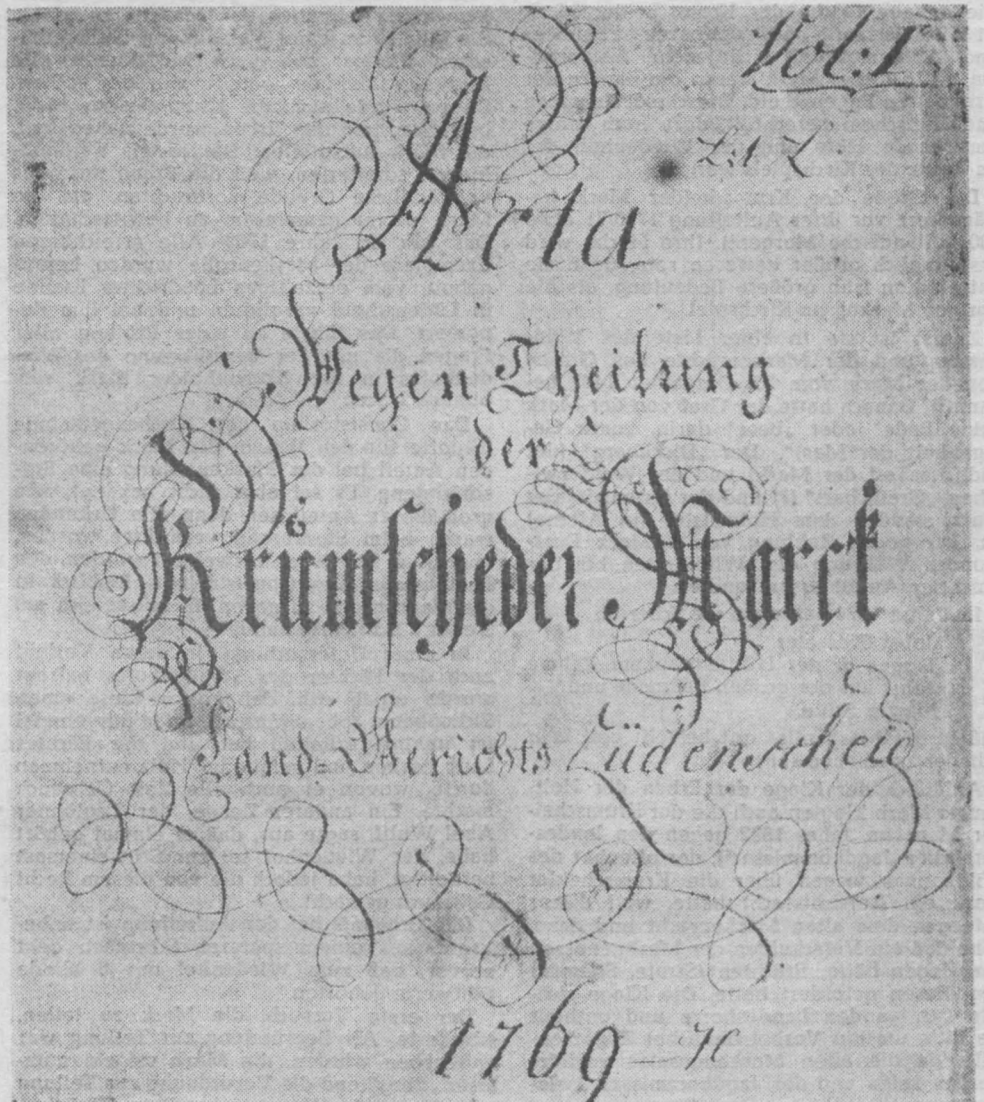 Vol: 1
Acta
Wegen Theilung
der
Krumscheder Marck
Land-Gerichts Lüdenscheid
1769